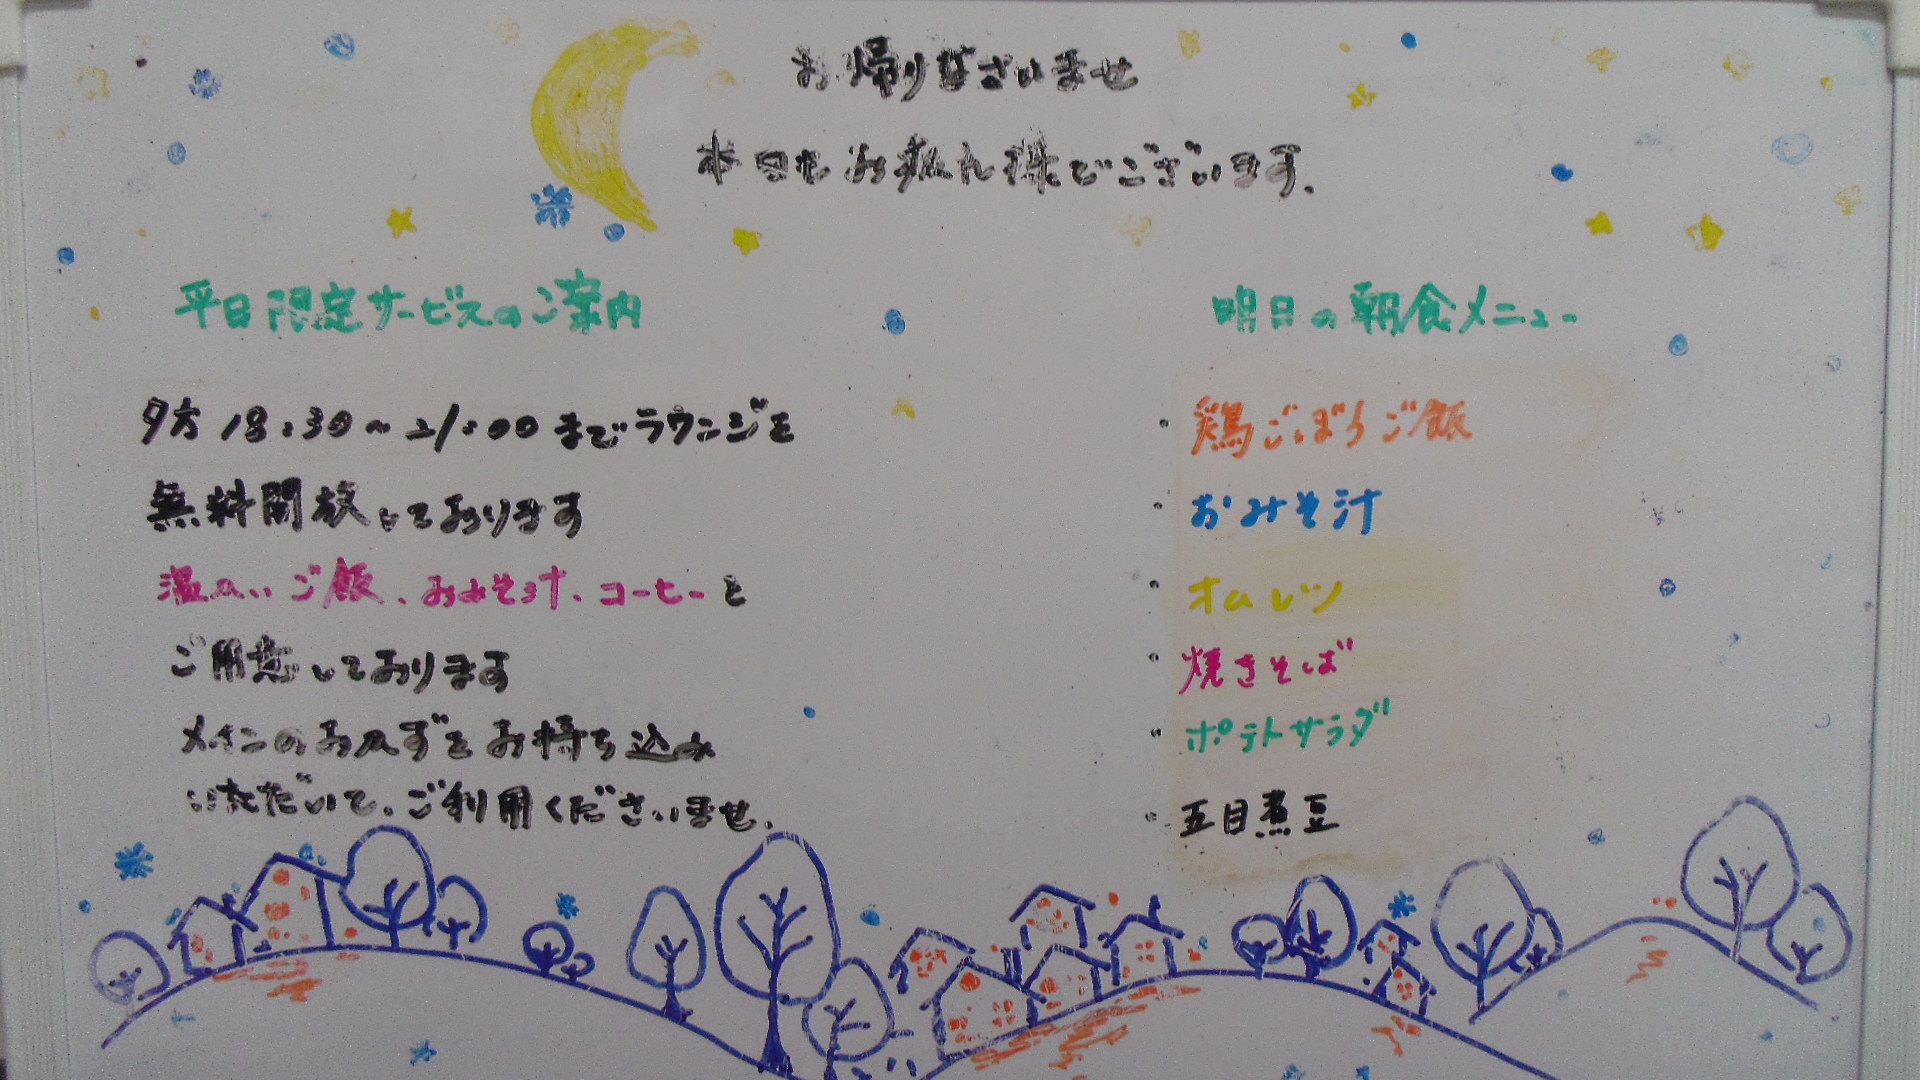 お帰りなさいませ
本日もお疲れ様でございます.
平日限定サービスのご案内
夕方 18:30～21:00 までラウンジを
無料開放しております
温かいご飯、おみそ汁、コーヒーを
ご用意しております
メインのおかずをお持ち込み
いただいて、ご利用くださいませ.
明日の朝食メニュー
・鶏ごぼうご飯
・おみそ汁
・オムレツ
・焼きそば
・ポテトサラダ
・五目煮豆